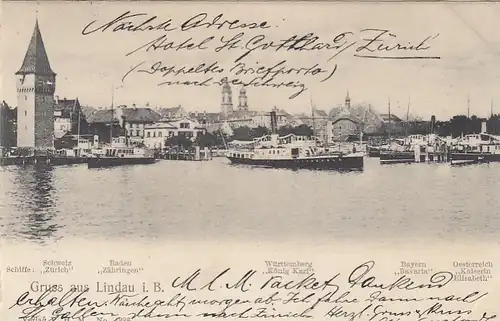 Nächste Adresse.
Hotel St. Gotthard / Zürich
(Doppeltes Briefporto)
nach der Schweiz
Schweiz Baden Württemberg Bayern Oesterreich
Schiffe: „Zürich" „Zähringen" „König Karl" „Bavaria" „Kaiserin
Elisabeth"
Gruss aus Lindau i. B.
M. l. M. Packet Dankend
erhalten. morgen ab. Ich fahre dann nach
St. Gallen dann nach Zürich Herzl. Gruss & Kuss